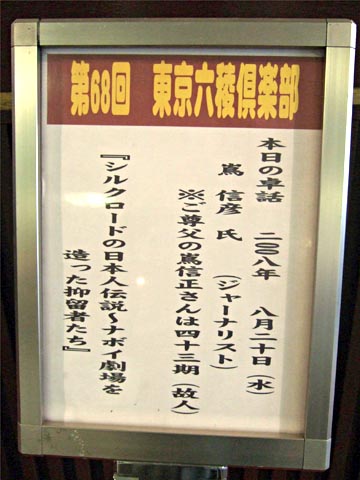 第68回 東京六稜倶楽部
本日の卓話 二〇〇八年 八月二十日(水)
嶌 信彦 氏 (ジャーナリスト)
※ご尊父の嶌信正さんは四十三期(故人)
『シルクロードの日本人伝説～ナボイ劇場を
造った抑留者たち』